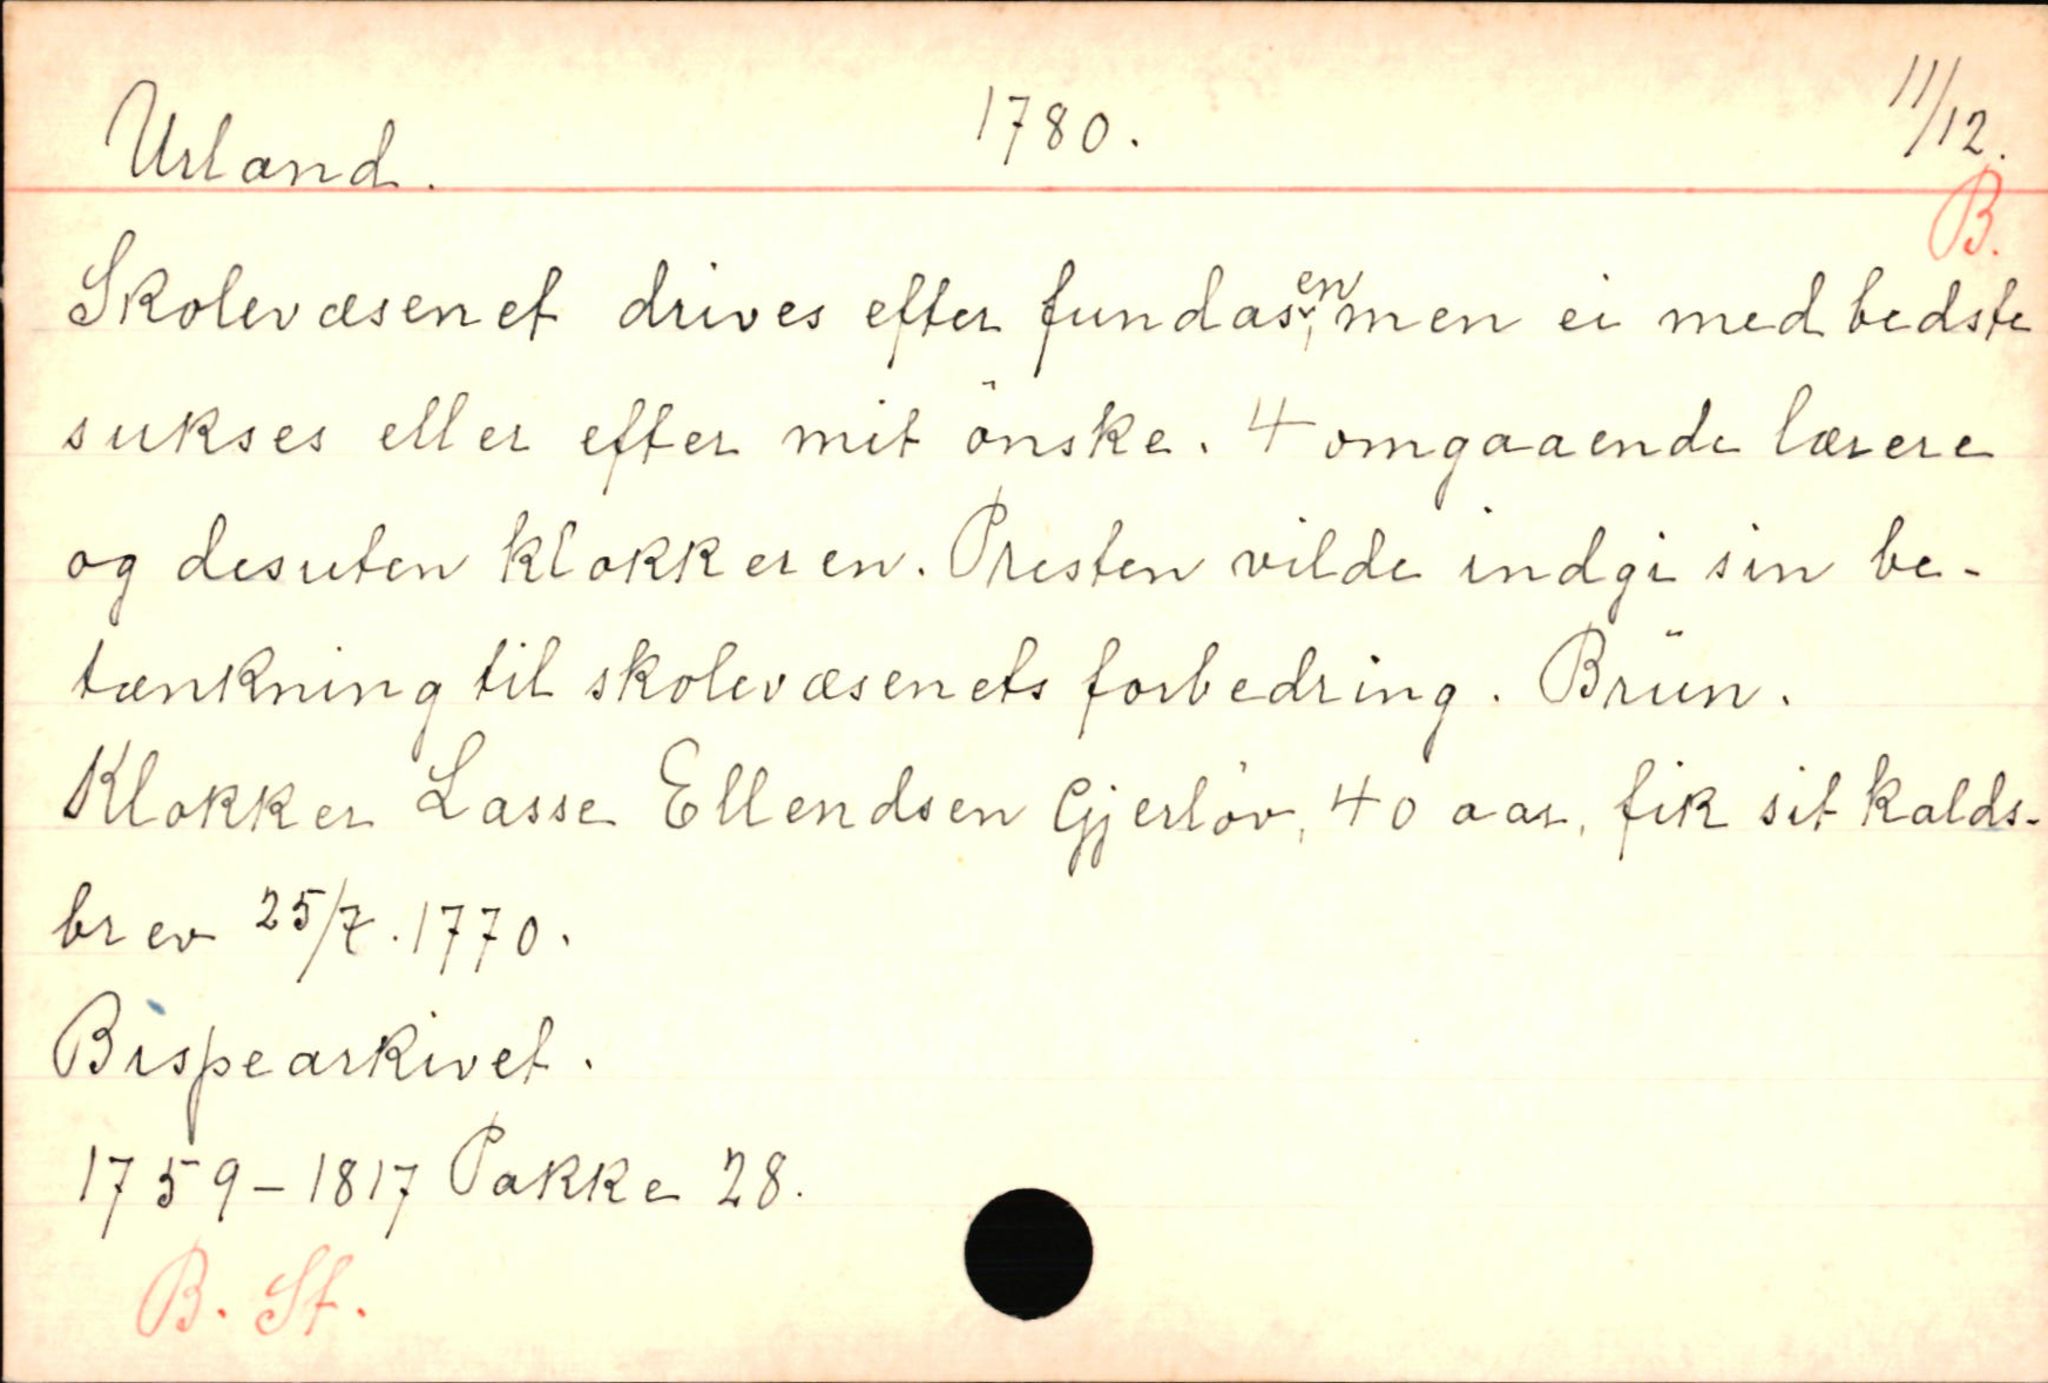 Urland. 1780. 11/12.
B.
Skolevæsenet drives efter fundasen, men ei med bedste
sukses eller efter mit önske. 4 omgaaende lærere
og desuten klokkeren. Presten vilde indgi sin be-
tænkning til skolevæsenets forbedring. Brün.
Klokker Lasse Ellendsen Gjerløv, 40 aar, fik sit kalds-
brev 25/7. 1770.
Bispearkivet.
1759-1817 Pakke 28.
B. St.